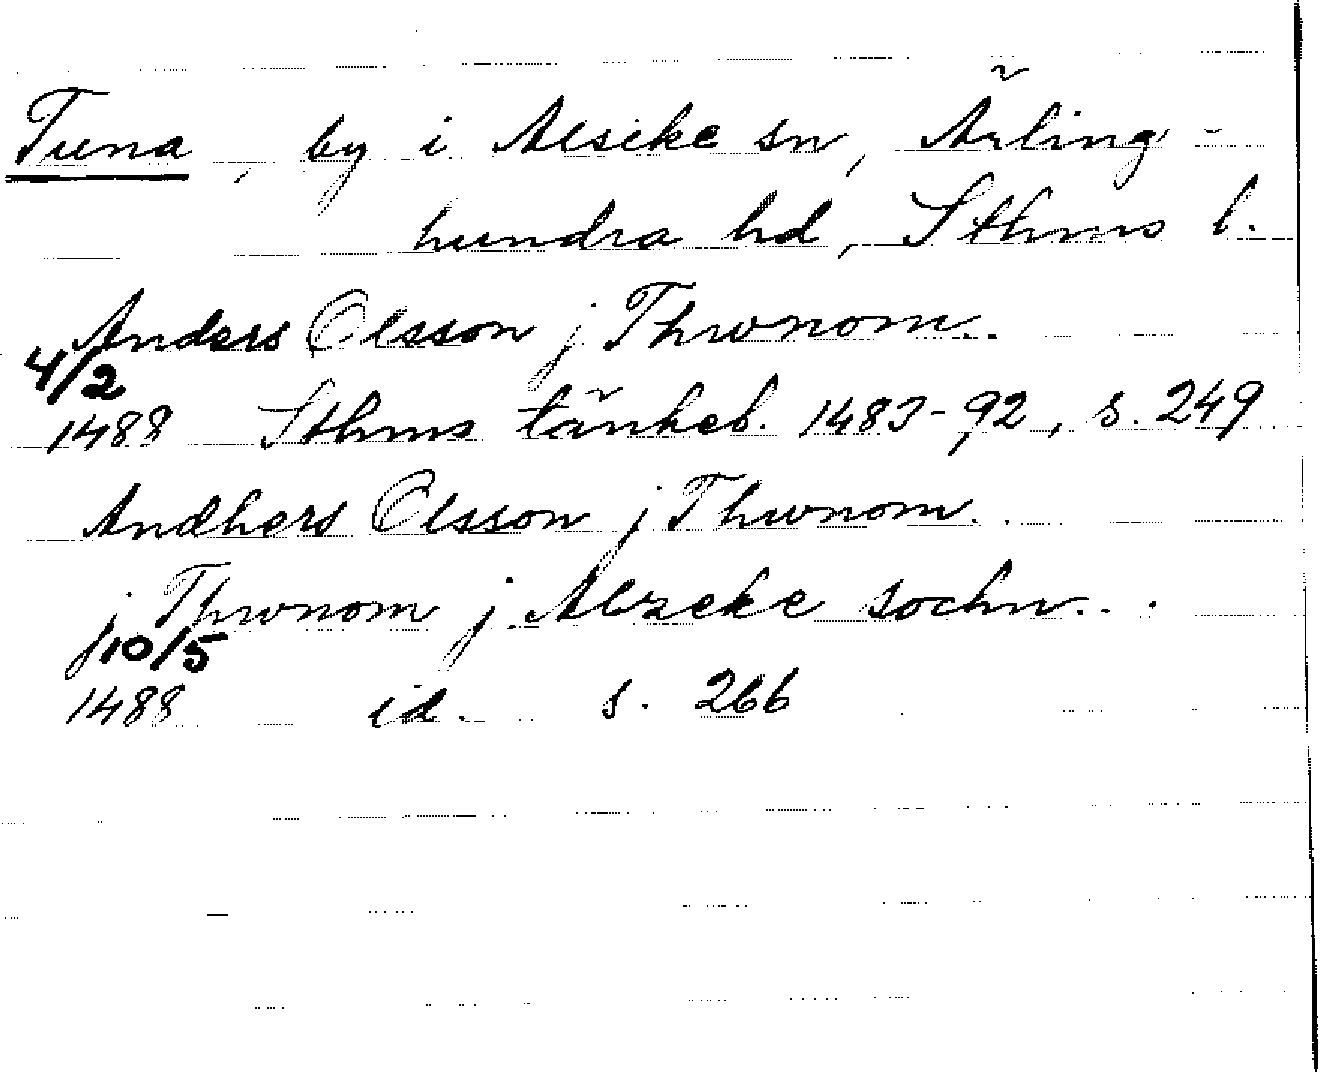 Tuna, by i Alsike sn, Ärling-
hundra hd, Sthms l.
Anders Olsson j Thwnom..
4/2
1488 Sthms tänkeb. 1483-92, s. 249
Andhers Olsson j Thwnom..
j Thwnom j Alzeke sochn...
10/5
1488 id. s. 266